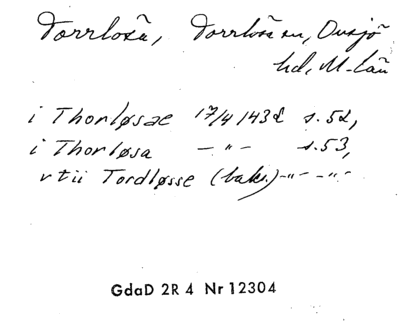 Torrlösa, Torrlösa sn, Onsjö
hd, M-län
i Thorløsae 17/4 1432 s. 52,
i Thorløsa — " — s. 53,
rtii Tordløsse (baks.) -"- -"-
GdaD 2R 4 Nr 12304